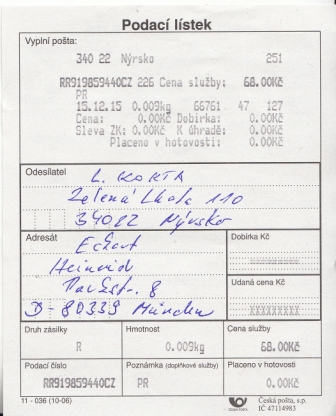 Podací lístek
Vyplní pošta:
340 22 Nýrsko 251
RR919859440CZ 226 Cena služby: 68.00Kč
PR
15.12.15 0.009kg 66761 47 127
Cena: 0.00Kč Dobírka: 0.00Kč
Sleva ZK: 0.00Kč K úhradě: 0.00Kč
Placeno v hotovosti: 0.00Kč
Odesílatel
L. KORTA
Zelená Lhota 110
34022 Nýrsko
Adresát
Eckert
Heinrich
8
D - 80339 München
Dobírka Kč
Udaná cena Kč
XXXXXXXXX
Druh zásilky Hmotnost Cena služby
R 0.009kg 68.00Kč
Podací číslo Poznámka (doplňkové služby) Placeno v hotovosti
RR919859440CZ PR 0.00Kč
11 - 036 (10-06) Česká pošta, s.p.
IČ 47114983